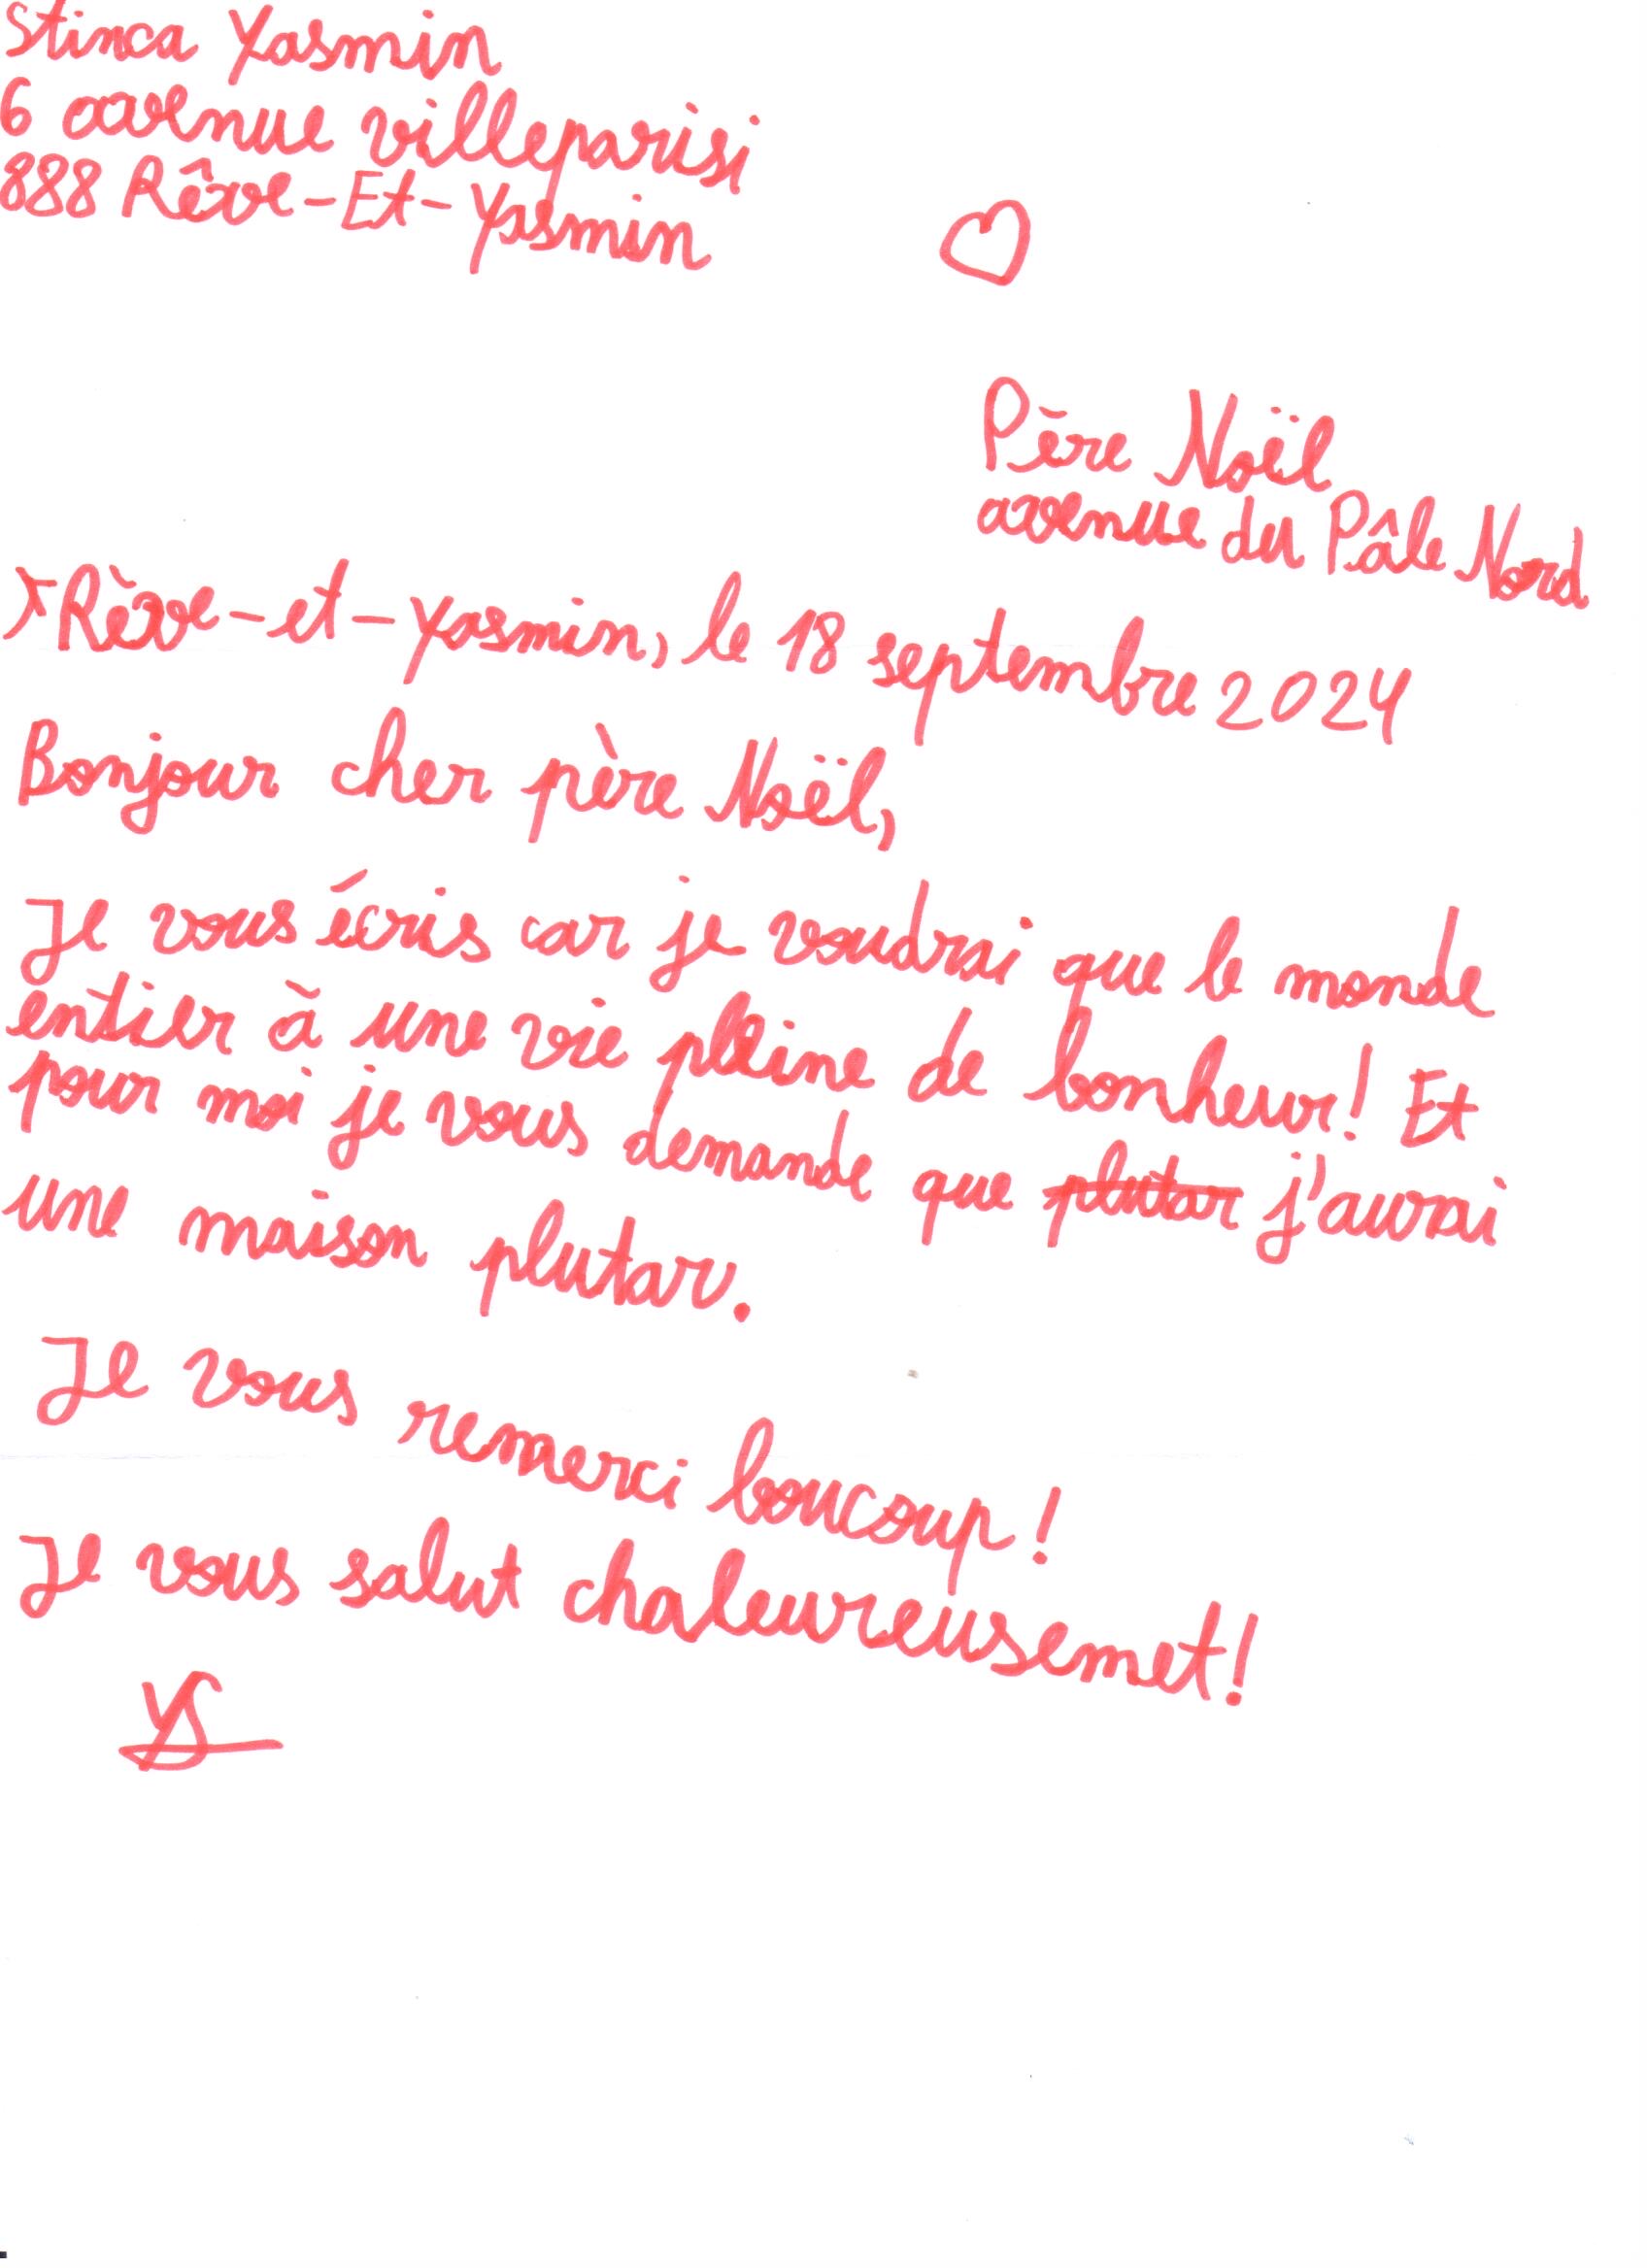 Stinca Yasmin
6 avenue villeparisi
888 Rêve-Et-Yasmin
Père Noël
avenue du Pâle Nord
Rève-et-Yasmin, le 18 septembre 2024
Bonjour cher père Noël,
Je vous écris car je voudrai que le monde
entier à une vie pleine de bonheur! Et
pour moi je vous demande que plutar j'aurai
une maison plutar.
Je vous remerci boucoup!
Je vous salut chaleureusemet!
YS